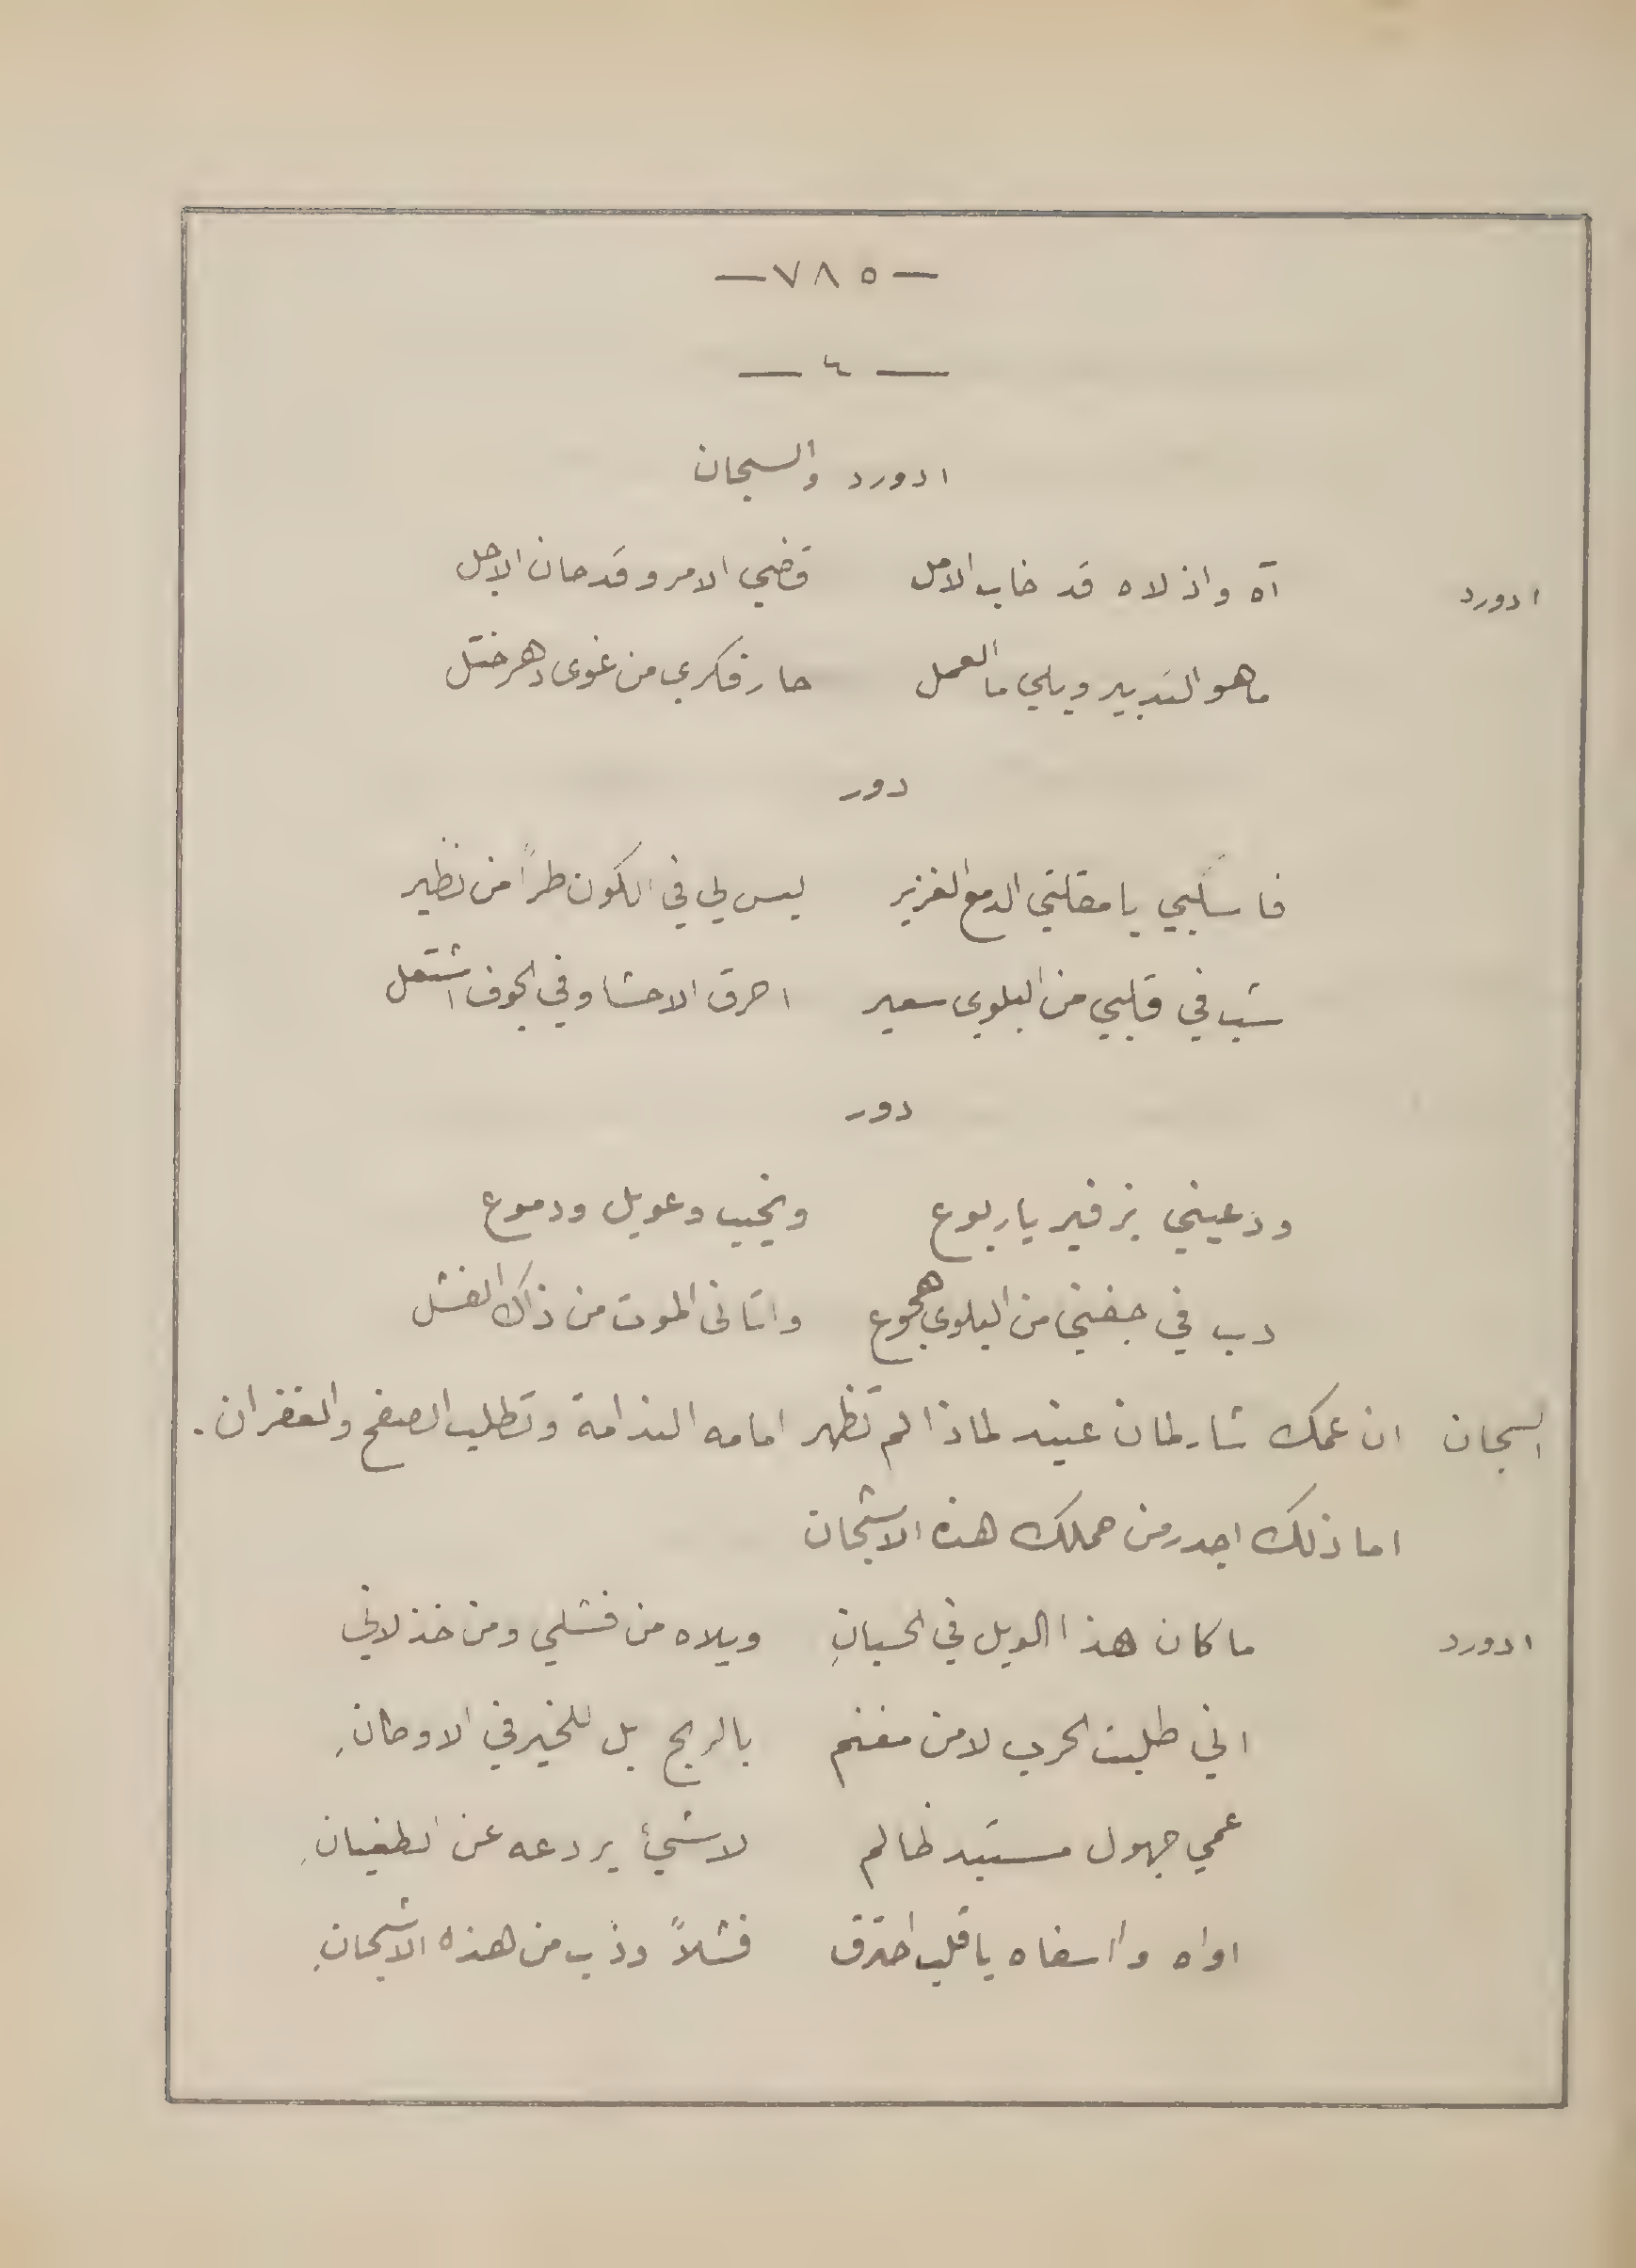 — ٧٨٥ —
— ٤ —
ادورد والسجان
ادورد آه واذلاه قد خاب الامل قضي الامر وقد حان الاجل
ما هو التدبير ويلي ما العمل حار فكري من غوى دهر ختل
دور
فاسكبي يا مقلتي الدمع الغزير ليس لي في الكون طراً من نظير
شب في قلبي من البلوى سعير احرق الاحشا وفي الجوف اشتعل
دور
ودعيني بزفير يا ربوع ونحيب وعويل ودموع
دب في جفني من البلوى هجوع واتانى الموت من ذاك الفشل
السجان ان عمك شارلمان عنيد لماذا لم تظهر امامه الندامة وتطلب الصفح والغفران .
اما ذلك اجدر من حملك هذه الاشجان
ادورد ما كان هذا الويل في الحسبانِ ويلاه من فشلي ومن خذلاني
اني طلبت الحرب لا من مغنم بالربح بل للخير في الاوطانِ
عمي جهول مستبد ظالم لا شيئ يردعه عن الطغيانِ
اواه وا اسفاه يا قلب احترق فشلاً وذب من هذه الاشجانِ